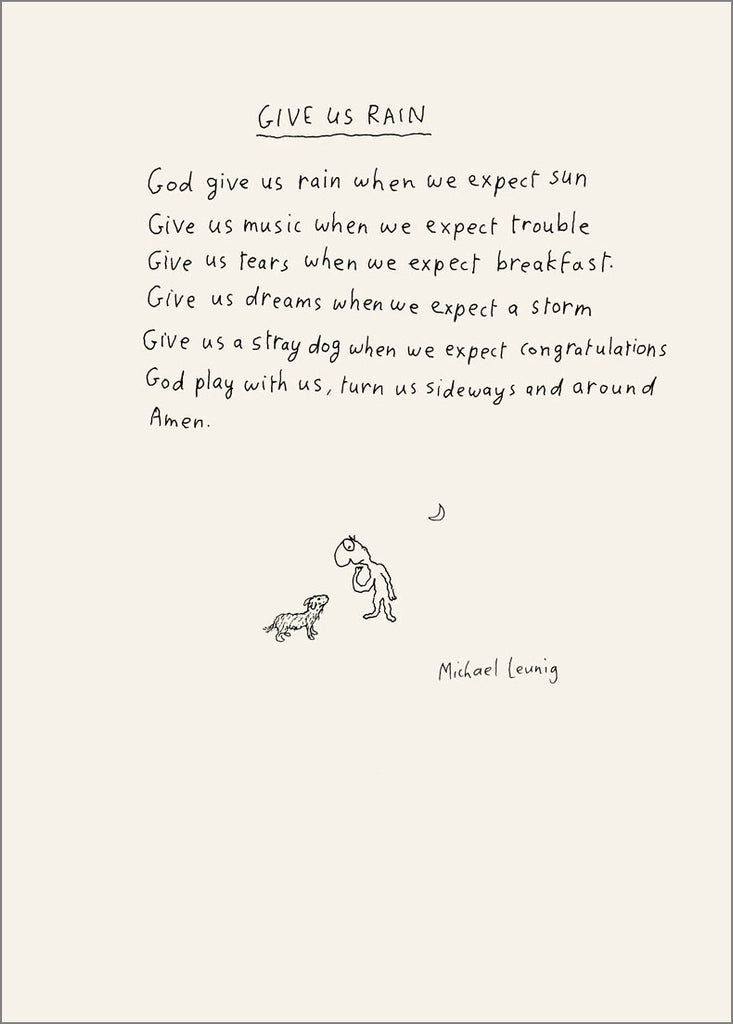 GIVE US RAIN
God give us rain when we expect sun
Give us music when we expect trouble
Give us tears when we expect breakfast.
Give us dreams when we expect a storm
Give us a stray dog when we expect congratulations
God play with us, turn us sideways and around
Amen.
Michael Leunig